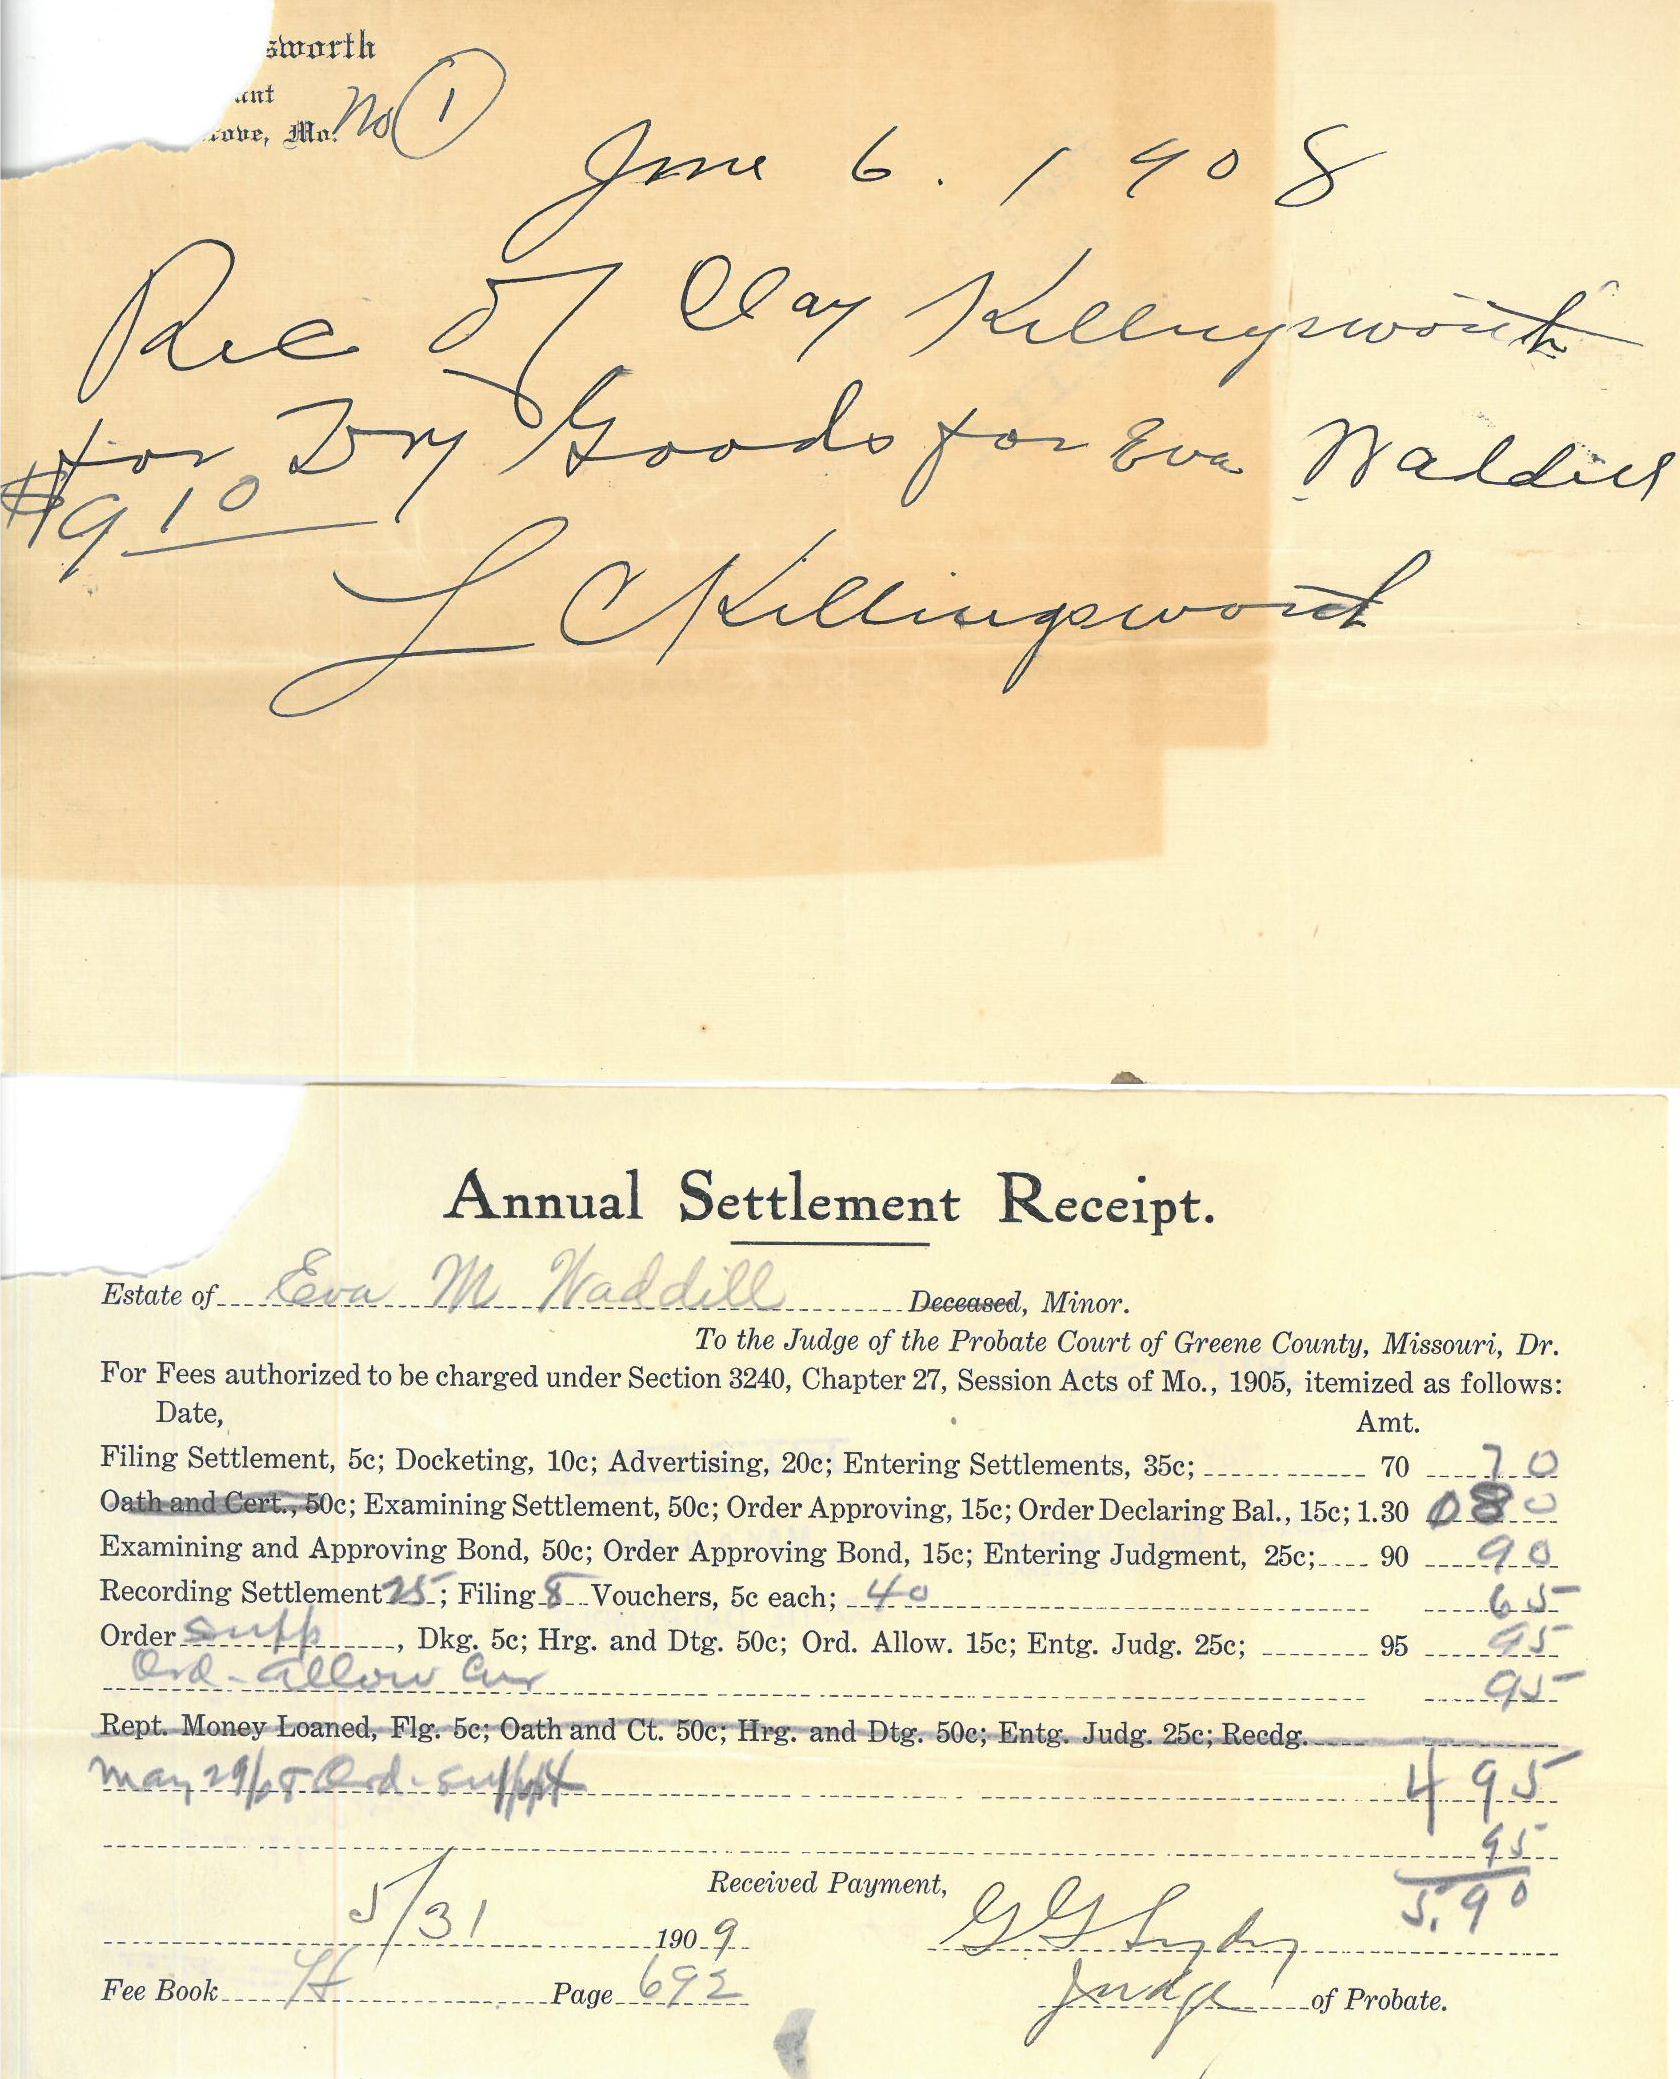 sworth
No 1
Mo.
June 6. 1908
Rec of Clay Killingsworth
for Dry Goods for Eva Waddill
$9 10
L C Killingsworth
Annual Settlement Receipt.
Estate of Eva M Waddill Deceased, Minor.
To the Judge of the Probate Court of Greene County, Missouri, Dr.
For Fees authorized to be charged under Section 3240, Chapter 27, Session Acts of Mo., 1905, itemized as follows:
Date, Amt.
Filing Settlement, 5c; Docketing, 10c; Advertising, 20c; Entering Settlements, 35c; 70 70
Oath and Cert., 50c; Examining Settlement, 50c; Order Approving, 15c; Order Declaring Bal., 15c; 1.30 080
Examining and Approving Bond, 50c; Order Approving Bond, 15c; Entering Judgment, 25c; 90 90
Recording Settlement 25; Filing 8 Vouchers, 5c each; 40 65
Order Supp, Dkg. 5c; Hrg. and Dtg. 50c; Ord. Allow. 15c; Entg. Judg. 25c; 95 95
Ord. allow Cur 95
Rept. Money Loaned, Flg. 5c; Oath and Ct. 50c; Hrg. and Dtg. 50c; Entg. Judg. 25c; Recdg.
May 29/08 Ord. Suppt 4 95
95
5.90
Received Payment,
5/31 1909 G G Lydy
Fee Book H Page 692 Judge of Probate.